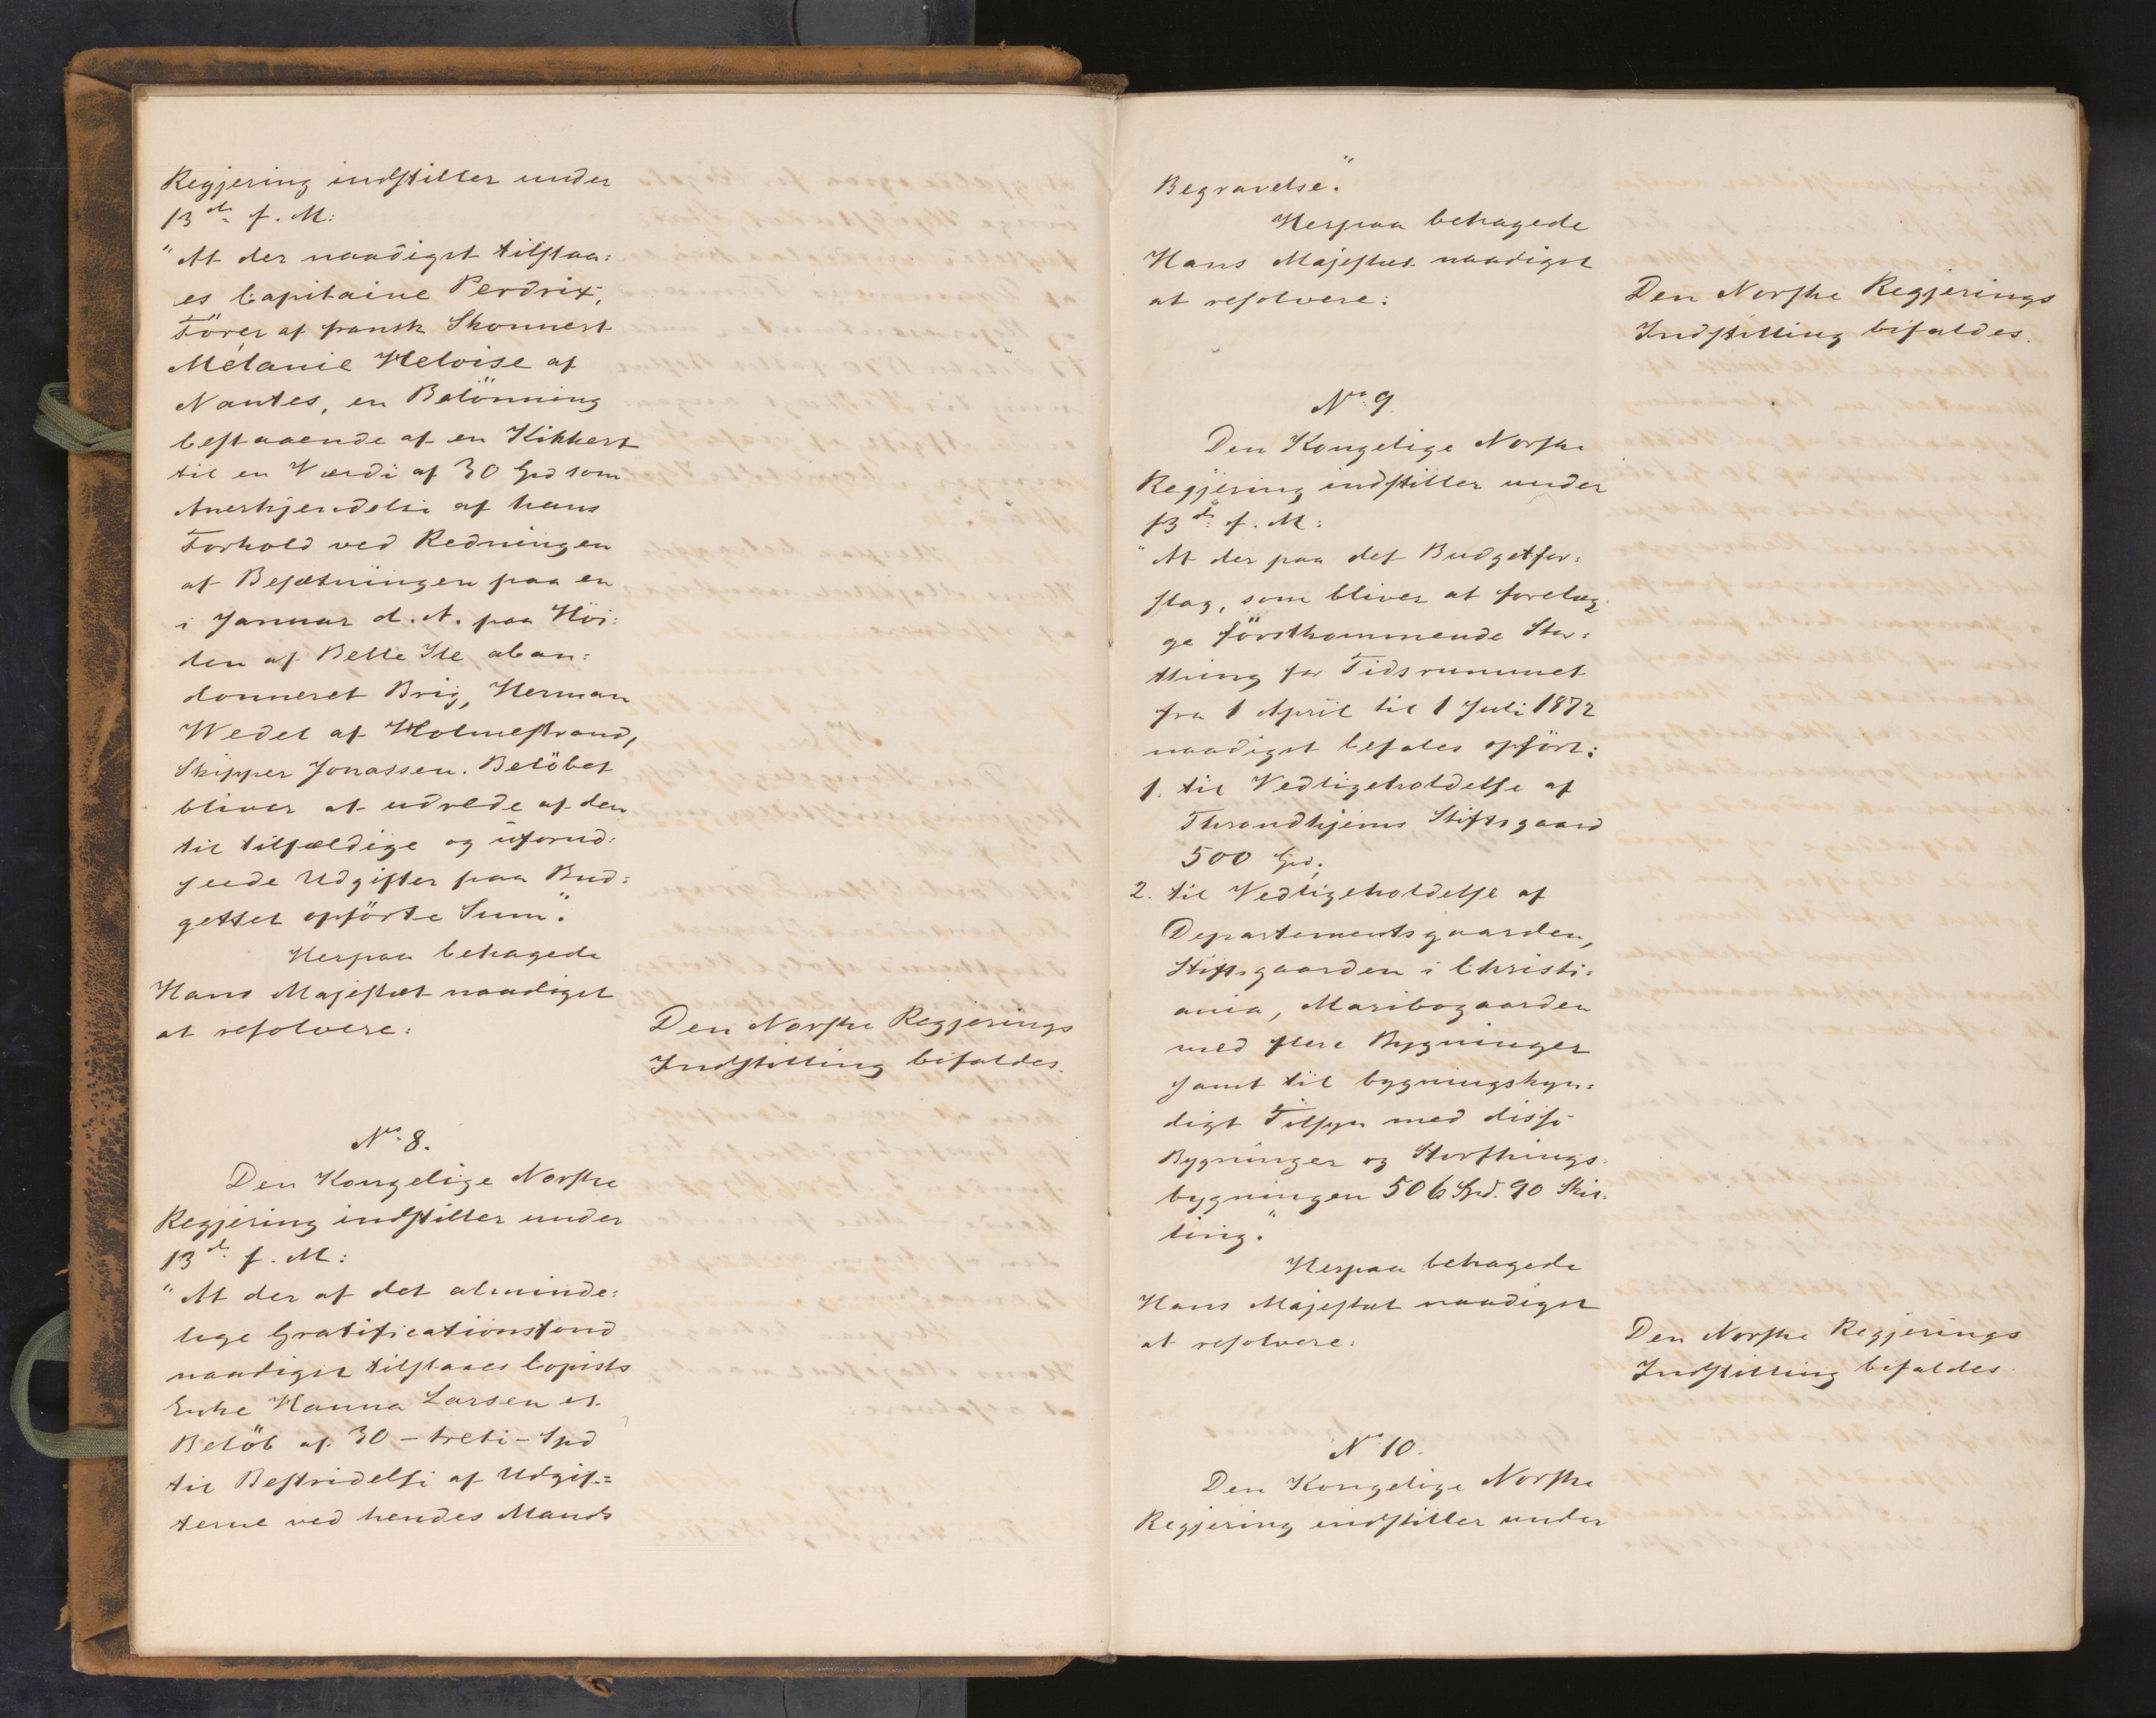 Regjering indstiller under
13de f. M:
"At der naadigst tilstaa:
es Capitaine Perdrix,
Förer af fransk Skonnert
Mélanie Heloise af
Nantes, en Belönning
bestaaende af en Kikkert
til en Værdi af 30 Spd som
Anerkjendelse af hans
Forhold ved Redningen
af Besætningen paa en
i Januar d. A. paa Höi:
den af Belle Ile aban:
donneret Brig, Herman
Wedel af Holmestrand,
Skipper Jonassen. Belöbet
bliver at udrede af den
til tilfældige og uforud:
seede Udgifter paa Bud:
gettet opförte Sum".
Herpaa behagede
Hans Majestæt naadigst
at resolvere:
Den Norske Regjerings
Indstilling bifaldes.
No 8.
Den Kongelige Norske
Regjering indstiller under
13de f. M:
"At der af det alminde:
lige Gratificationsfond
naadigst tilstaaes Copists
Enke Hanna Larsen et
Belöb af 30 - treti - Spd
til Bestridelse af Udgif=
terne ved hendes Mands
Begravelse".
Herpaa behagede
Hans Majestæt naadigst
at resolvere:
Den Norske Regjerings
Indstilling bifaldes.
No 9.
Den Kongelige Norske
Regjering indstiller under
13de f. M:
"At der paa det Budgetfor:
slag, som bliver at forelæg
ge förstkommende Stor:
thing for Tidsrummet
fra 1 April til 1 Juli 1872
naadigst befales opfört:
1. til Vedligeholdelse af
Throndhjems Stiftsgaard
500 Spd;
2. til Vedligeholdelse af
Departementsgaarden,
Stiftsgaarden i Christi:
ania, Maribogaarden
med flere Bygninger
samt til bygningskyn:
digt Tilsyn med disse
Bygninger og Storthings
bygningen 506 Spd. 90 Skil.
ling."
Herpaa behagede
Hans Majestæt naadigst
at resolvere:
Den Norske Regjerings
Indstilling bifaldes
No 10.
Den Kongelige Norske
Regjering indstiller under